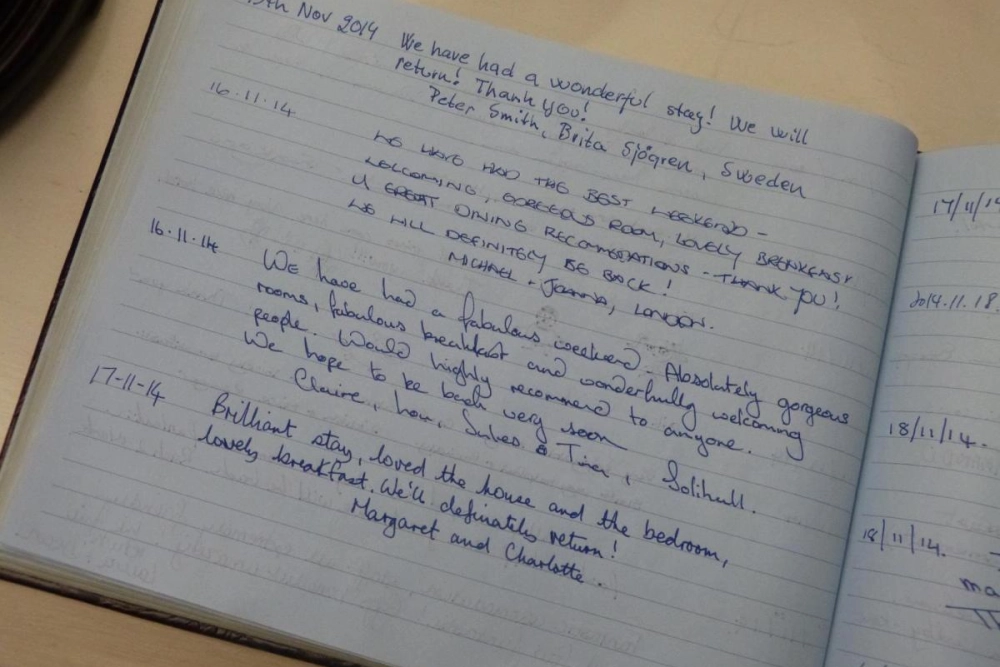 th Nov 2014 We have had a wonderful stay! We will
return! Thank you!
Peter Smith, Brita Sjögren, Sweden
16.11.14
WE HAVE HAD THE BEST WEEKEND -
WELCOMING, GORGEOUS ROOM, LOVELY BREAKFAST
& GREAT DINING RECOMMEDATIONS - THANK YOU!
WE WILL DEFINITELY BE BACK!
MICHAEL - JOANNA, LONDON.
16.11.14
We have had a fabulous weekend. Absolutely gorgeous
rooms, fabulous breakfast and wonderfully welcoming
people. Would highly recommend to anyone.
We hope to be back very soon
Claire, & Tina, Solihull.
17-11-14
Brilliant stay, loved the house and the bedroom,
lovely breakfast. We'll definately return!
Margaret and Charlotte.
17/11/14
2014.11.18
18/11/14.
18/11/14.
ma